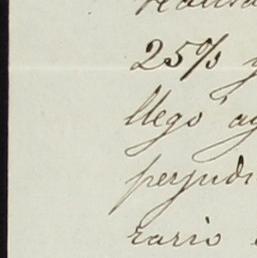 25%
llegó
perjudi
rario